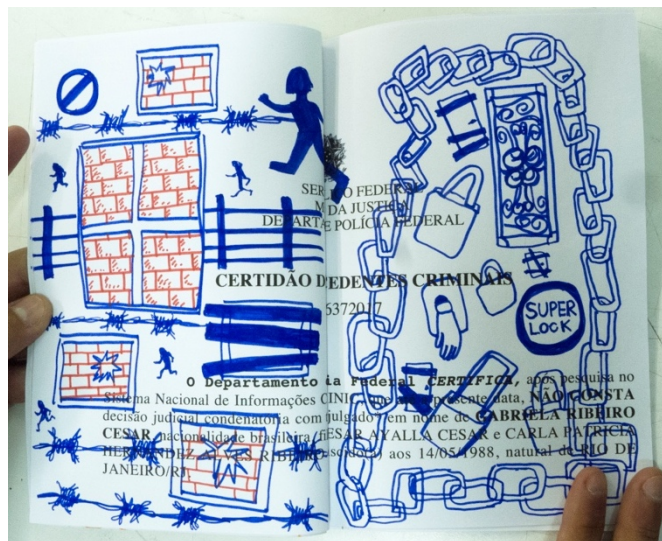 SER O FEDERAL
M DA JUSTIÇA
DEPARTA E POLÍCIA FEDERAL
CERTIDÃO D EDENTES CRIMINAIS
5372017
SUPER
LOCK
O Departamento ia Federal CERTIFICA, após pesquisa no
Sistema Nacional de Informações CINIC, que presente data, NÃO CONSTA
decisão judicial condenatória com julgado em nome de GABRIELA RIBEIRO
CESAR, nacionalidade brasileira, fi ESAR AYALLA CESAR e CARLA PATRICIA
HERNANDEZ ALVES RIBEIRO scido(a) aos 14/05/1988, natural de RIO DE
JANEIRO/RJ.